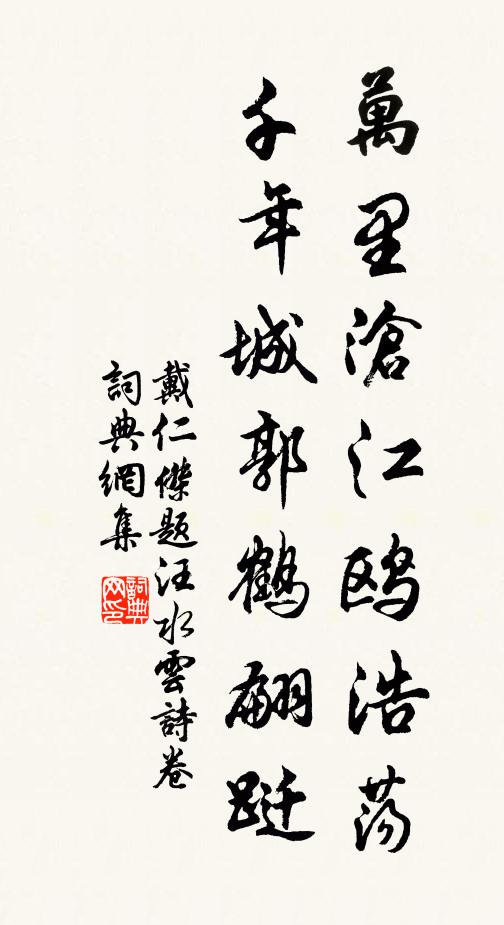 萬里滄江鸥浩荡
千年城郭鹤翩跹
戴仁傑题汪水雲詩卷
詞典網集
詞典网印